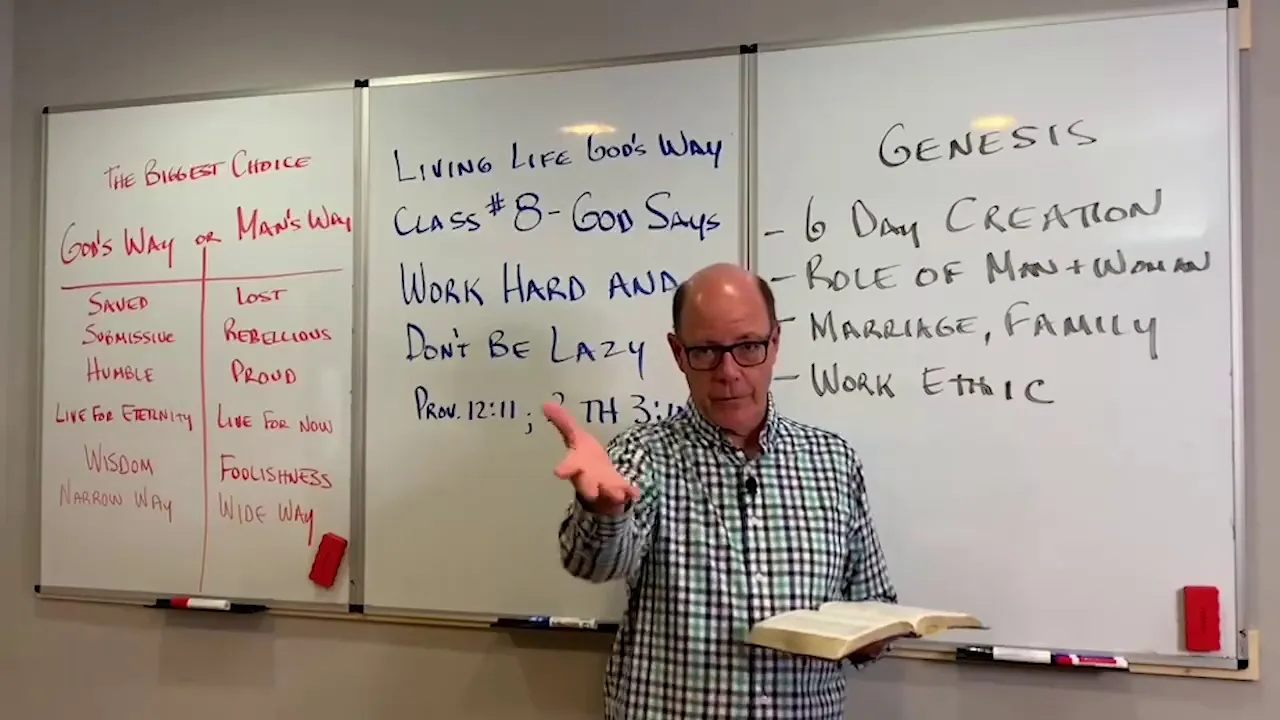 THE BIGGEST CHOICE
GOD'S WAY OR MAN'S WAY
SAVED LOST
SUBMISSIVE REBELLIOUS
HUMBLE PROUD
LIVE FOR ETERNITY LIVE FOR NOW
WISDOM FOOLISHNESS
NARROW WAY WIDE WAY
LIVING LIFE GOD'S WAY
CLASS #8 - GOD SAYS
WORK HARD AND
DON'T BE LAZY
PROV. 12:11; 2 TH 3:
GENESIS
- 6 DAY CREATION
- ROLE OF MAN + WOMAN
- MARRIAGE, FAMILY
- WORK ETHIC